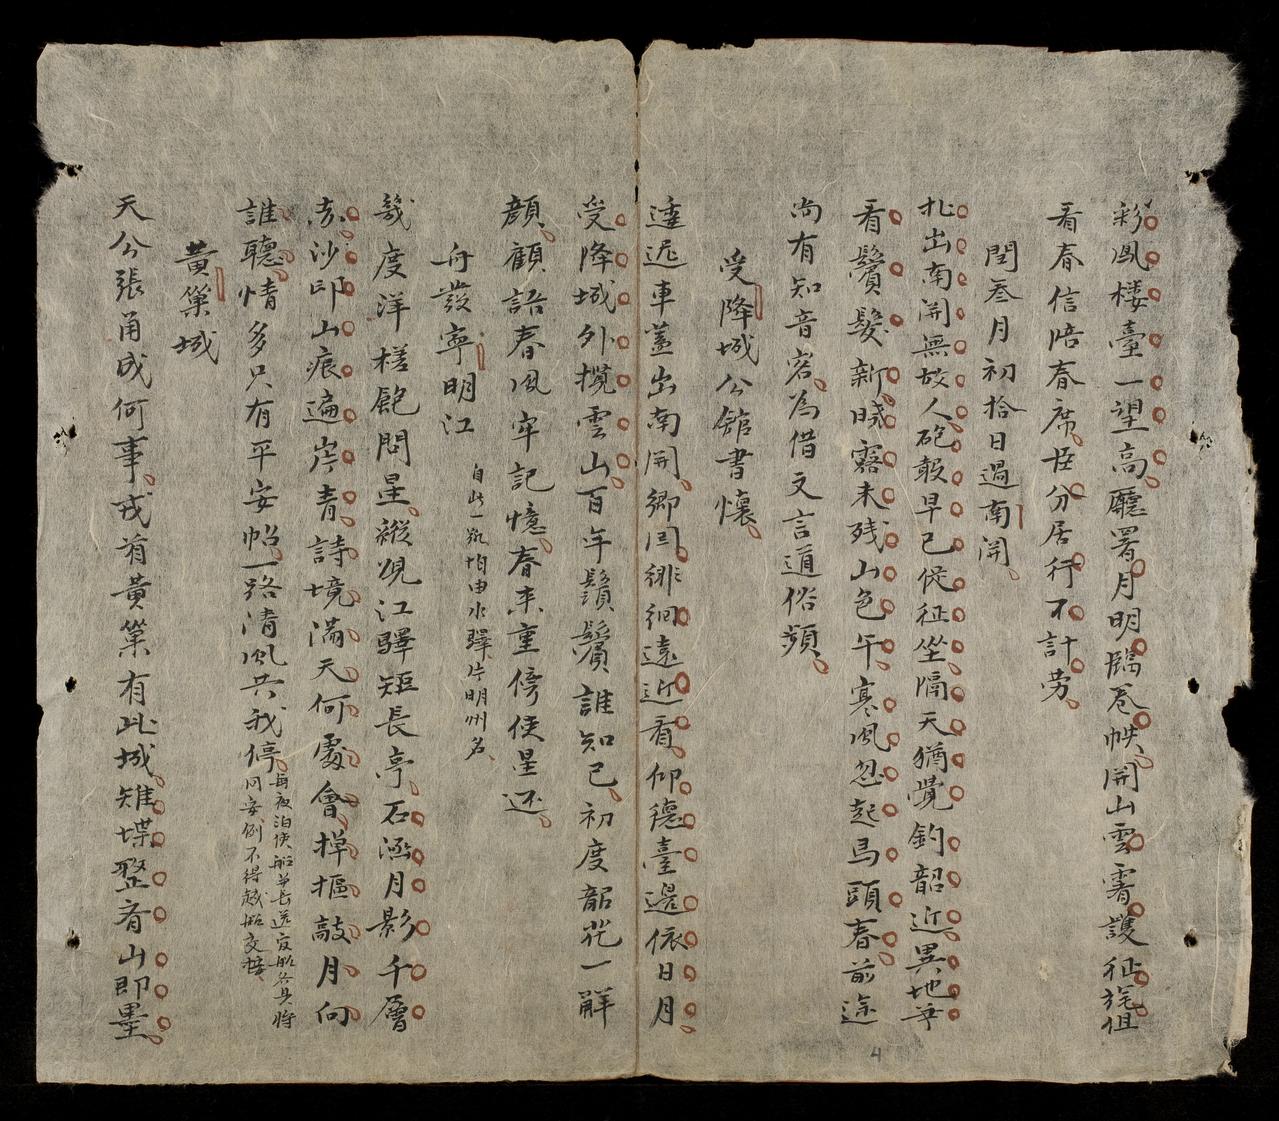 彩鳳樓臺一望高廳署月明臨卷帙開山雲霄護征旄但
看春信陪春席臣分居行不計勞
閏叁月初拾日過南關
北出南開無故人砲敲早已促征坐隔天猶覺鈞韶近異地爭
看鬢髮新曉露未殘山色午寒風忽起馬頭春前途
尚有知音客為借文言道俗頻
受降城公館書懷
逶迤車蓋出南開鄉閭徘徊遠近看仰德臺邊依日月
受降城外攬雲山百年鬚鬢誰知己初度韶花一解
顏顧語春風牢記憶春來重傍使星還
舟發寧明江
自此一路均由水驛片明州名
幾度洋槎飽問星縱觀江驛短長亭石涵月影千層
赤沙印山痕遍岸青詩境滿天何處會撣樞敲月向
誰聽情多只有平安帖一路清風共我停
每夜泊使船弟長送官船各具將
同安例不得越船交接
黃巢城
天公張角成何事戎首黃巢有此城雉堞整看山即墨
4